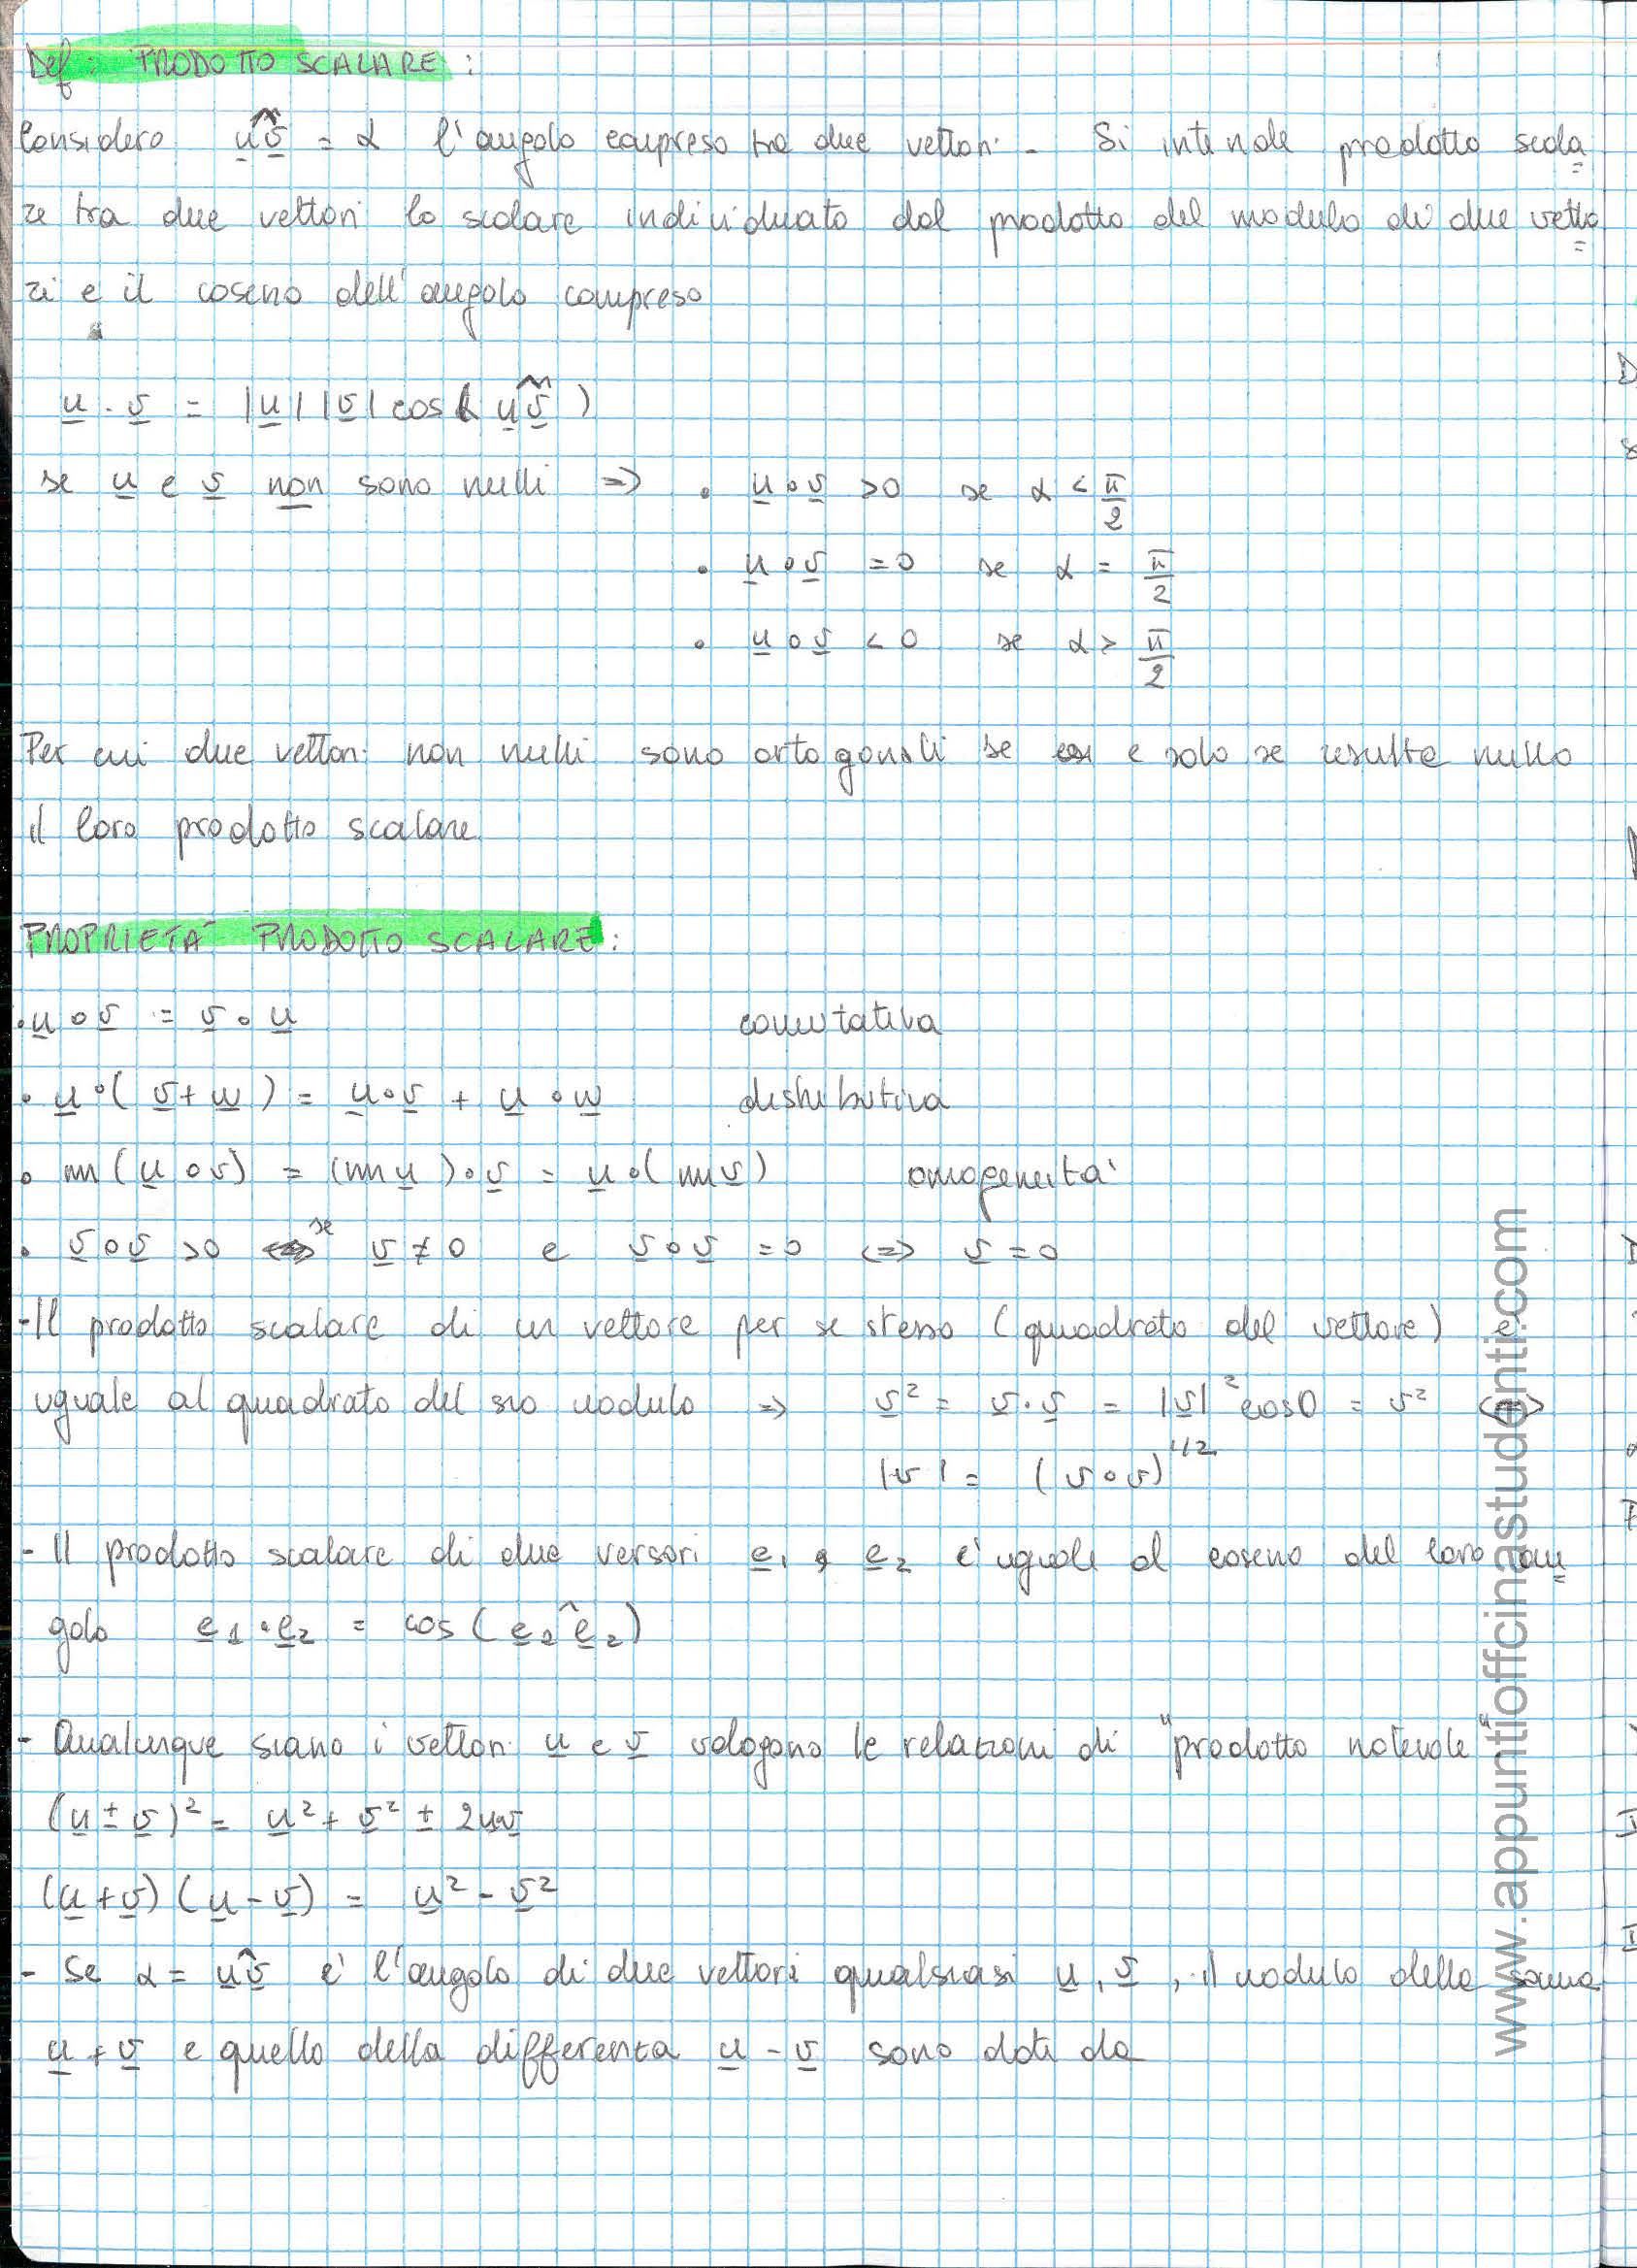 Def: PRODOTTO SCALARE:
Considero u̲v̲̂ = α l'angolo compreso tra due vettori. Si intende prodotto scala
re tra due vettori lo scalare individuato dal prodotto del modulo di due vetto
ri e il coseno dell'angolo compreso
u̲ · v̲ = |u̲| |v̲| cos( u̲v̲̂ )
se u̲ e v̲ non sono nulli => • u̲ ∘ v̲ > 0 se α < π/2
• u̲ ∘ v̲ = 0 se α = π/2
• u̲ ∘ v̲ < 0 se α > π/2
Per cui due vettori non nulli sono ortogonali se e solo se risulta nullo
il loro prodotto scalare
PROPRIETA' PRODOTTO SCALARE:
• u̲ ∘ v̲ = v̲ ∘ u̲ comutativa
• u̲ ∘ ( v̲ + w̲ ) = u̲ ∘ v̲ + u̲ ∘ w̲ distributiva
• m ( u̲ ∘ v ) = ( m u̲ ) ∘ v̲ = u̲ ∘ ( m v̲ ) omogeneità
• v̲ ∘ v̲ > 0 se v̲ ≠ 0 e v̲ ∘ v̲ = 0 <=> v̲ = 0
- Il prodotto scalare di un vettore per se stesso (quadrato del vettore) è
uguale al quadrato del suo modulo => v̲² = v̲ · v̲ = |v̲|² cos0 = v² <=>
|v| = ( v ∘ v )^1/2
- Il prodotto scalare di due versori e̲₁ e e̲₂ è uguale al coseno del loro an
golo e̲₁ · e̲₂ = cos ( e̲₁ ^ e̲₂ )
- Qualunque siano i vettori u̲ e v̲ valgono le relazioni di "prodotto notevole"
( u̲ ± v̲ )² = u̲² + v̲² ± 2uv̲
( u̲ + v̲ ) ( u̲ - v̲ ) = u̲² - v̲²
- Se α = u̲v̲̂ è l'angolo di due vettori qualsiasi u̲, v̲, il modulo della soma
u̲ + v̲ e quello della differenza u̲ - v̲ sono dati da
www.appuntioffcinastudenti.com